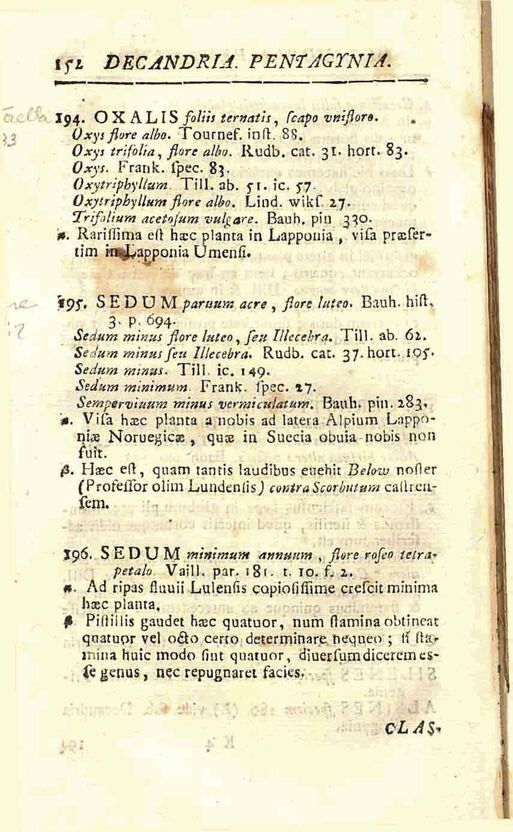 152 DECANDRIA. PENTAGYNIA.
194. OXALIS foliis ternatis, scapo vnifloro.
Oxys flore albo. Tournef. inst. 88.
Oxys trifolia, flore albo. Rudb. cat. 31. hort. 83.
Oxys. Frank. spec. 83.
Oxytriphyllum. Till. ab. 51. ic. 57.
Oxytriphyllum flore albo. Lind. wiks. 27.
Trifolium acetosum vulgare. Bauh. pin 330.
α. Rarissima est hæc planta in Lapponia, visa præser-
tim in Lapponia Umensi.
195. SEDUM paruum acre, flore luteo. Bauh. hist.
3. p. 694.
Sedum minus flore luteo, seu Illecebra. Till. ab. 62.
Sedum minus seu Illecebra. Rudb. cat. 37. hort. 105.
Sedum minus. Till. ic. 149.
Sedum minimum. Frank. spec. 27.
Semperviuum minus vermiculatum. Bauh. pin. 283.
α. Visa hæc planta a nobis ad latera Alpium Lappo-
niæ Noruegicæ, quæ in Suecia obuia nobis non
fuit.
β. Hæc est, quam tantis laudibus euehit Below noster
(Professor olim Lundensis) contra Scorbutum castren-
sem.
196. SEDUM minimum annuum, flore roseo tetra-
petalo. Vaill. par. 181. t. 10. f. 2.
α. Ad ripas fluuii Lulensis copiosissime crescit minima
hæc planta.
β Pistillis gaudet hæc quatuor, num stamina obtineat
quatuor vel octo certo determinare nequeo; si sta-
mina huic modo sint quatuor, diuersum dicerem es-
se genus, nec repugnaret facies.
CLAS-